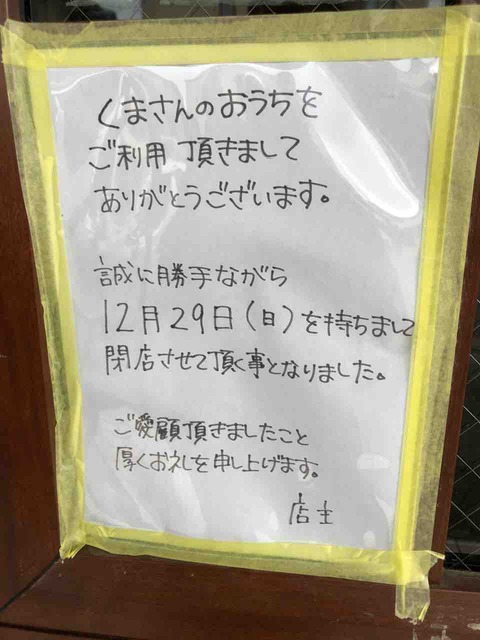 くまさんのおうちを
ご利用頂きまして
ありがとうございます。
誠に勝手ながら
12月29日(日)を持ちまして
閉店させて頂く事となりました。
ご愛顧頂きましたこと
厚くお礼を申し上げます。
店主